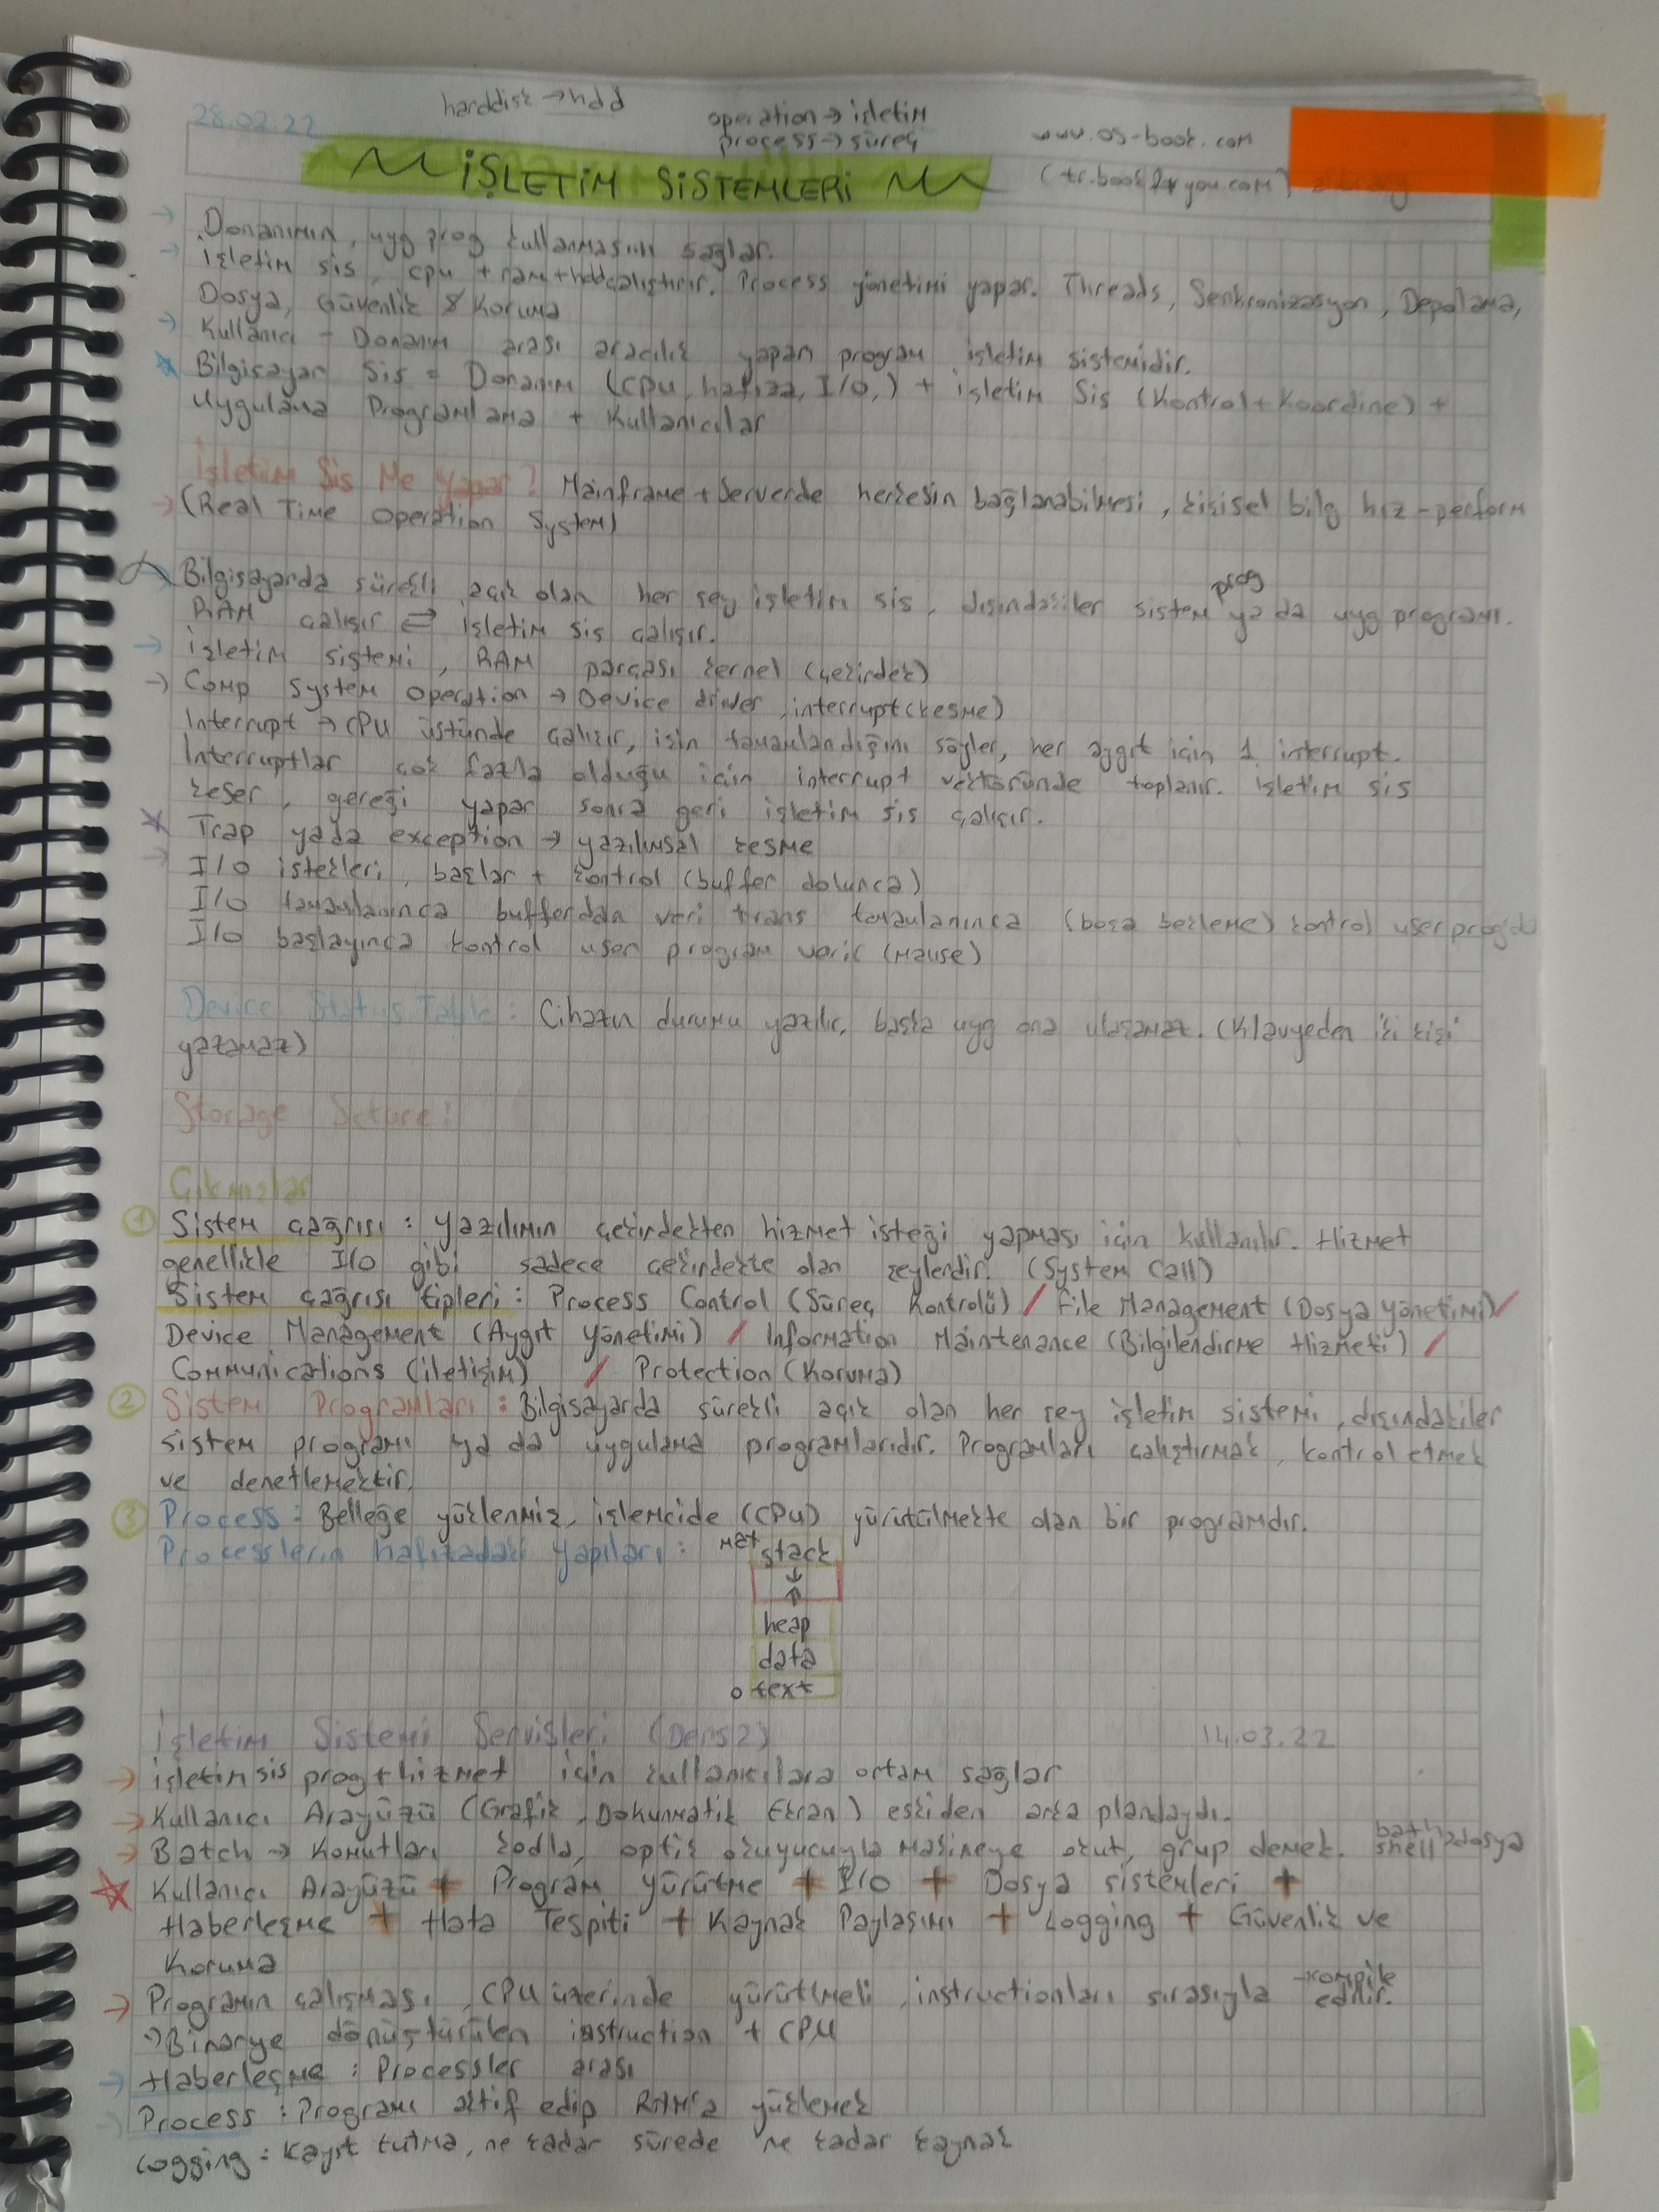 28.02.22
harddisk → hdd
operation → işletim
process → süreç
www.os-book.com
(tr.book4you.com)
İŞLETİM SİSTEMLERİ
→ Donanımın, uyg prog kullanmasını sağlar.
→ işletim sis, cpu + ram + hdd çalıştırır. Process yönetimi yapar. Threads, Senkronizasyon, Depolama,
Dosya, Güvenlik & Koruma
→ Kullanıcı - Donanım arası aracılık yapan program işletim sistemidir.
Bilgisayar Sis = Donanım (cpu, hafıza, I/O,) + işletim Sis (Kontrol + Koordine) +
Uygulama Programlama + Kullanıcılar
İşletim Sis Ne Yapar? Mainframe + Serverde herkesin bağlanabilmesi, kişisel bilg hız - perform
→ (Real Time Operation System)
Bilgisayarda sürekli açık olan her şey işletim sis, dışındakiler sistem prog ya da uyg programı.
RAM çalışır ⇄ işletim sis çalışır.
→ işletim sistemi, RAM parçası kernel (çekirdek)
→ Comp System Operation → Device driver, interrupt (kesme)
Interrupt → CPU üstünde çalışır, işin tamamlandığını söyler, her aygıt için 1 interrupt.
Interruptlar çok fazla olduğu için interrupt vektöründe toplanır. işletim sis
keser, gereği yapar sonra geri işletim sis çalışır.
Trap yada exception → yazılımsal kesme
→ I/O istekleri, başlar + kontrol (buffer dolunca)
I/O tamamlanınca bufferdan veri trans tamamlanınca (boşa bekleme) kontrol user prog'da
I/O başlayınca kontrol user program verir (mause)
Device Status Table: Cihazın durumu yazılır, başka uyg ona ulaşamaz. (Klavyeden iki kişi
yazamaz)
Storage Scture!
Çıkmışlar
1 Sistem çağrısı : yazılımın çekirdekten hizmet isteği yapması için kullanılır. Hizmet
genellikle I/O gibi sadece çekirdekte olan şeylerdir. (System Call)
Sistem çağrısı tipleri : Process Control (Süreç Kontrolü) / File Management (Dosya Yönetimi) /
Device Management (Aygıt Yönetimi) / Information Maintenance (Bilgilendirme Hizmeti) /
Communications (iletişim) / Protection (Koruma)
2 Sistem Programları : Bilgisayarda sürekli açık olan her şey işletim sistemi, dışındakiler
sistem programı ya da uygulama programlarıdır. Programları çalıştırmak, kontrol etmek
ve denetlemektir.
3 Process : Belleğe yüklenmiş, işlemcide (CPU) yürütülmekte olan bir programdır.
Processlerin hafızadaki yapıları :
max stack
↓
↑
heap
data
0 text
İşletim Sistemi Servisleri (Ders2) 14.03.22
→ işletim sis prog + hizmet için kullanıcılara ortam sağlar
→ Kullanıcı Arayüzü (Grafik, Dokunmatik Ekran) eskiden arka plandaydı.
→ Batch → Komutları kodla, optik okuyucuyla makineye okut, grup demek. bath dosya
shell
Kullanıcı Arayüzü + Program Yürütme + I/O + Dosya sistemleri +
Haberleşme + Hata Tespiti + Kaynak Paylaşımı + Logging + Güvenlik ve
Koruma
→ Programın çalışması, CPU üzerinde yürütülmeli, instructionları sırasıyla kompile edilir.
→ Binarye dönüştürülen instruction + CPU
→ Haberleşme : Processler arası
→ Process : Programı aktif edip RAM'a yüklemek
Logging : Kayıt tutma, ne kadar sürede ne kadar kaynak